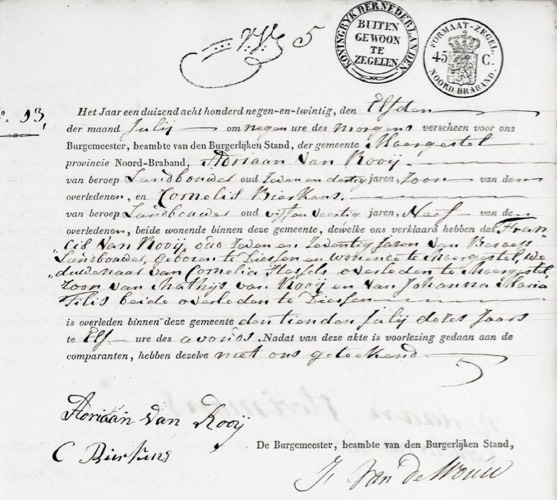 5
KONINGRYK DER NEDERLANDEN
BUITEN
GEWOON
TE
ZEGELEN
FORMAAT-ZEGEL
45 C.
NOORD-BRABAND.
13,
Het Jaar een duizend acht honderd negen-en-twintig, den Elfden
der maand Julij om negen ure des morgens verscheen voor ons
Burgemeester, beambte van den Burgerlijken Stand, der gemeente Moergestel
provincie Noord-Braband, Adriaan van Rooij
van beroep Landbouwer oud zeven en dertig jaren, Zoon van den
overledenen, en Cornelis Bierkens
van beroep Landbouwer oud vijf en veertig jaren, Neef van de
overledenen, beide wonende binnen deze gemeente, dewelke ons verklaard hebben dat Fran
cis van Rooij oud zeven en zeventig jaren van Beroep
Landbouwer, geboren te Diessen en wonende te Moergestel, We
duwenaar van Cornelia overleden te Moergestel
Zoon van Mathijs van Rooij en van Johanna Maria
Filis beide overleden te Diessen
is overleden binnen deze gemeente den tienden Julij dezes Jaars
te Elf ure des avonds. Nadat van deze akte is voorlezing gedaan aan de
comparanten, hebben dezelve met ons geteekend
Adriaan van Rooij
C Bierkens
De Burgemeester, beambte van den Burgerlijken Stand,
van de Wouw